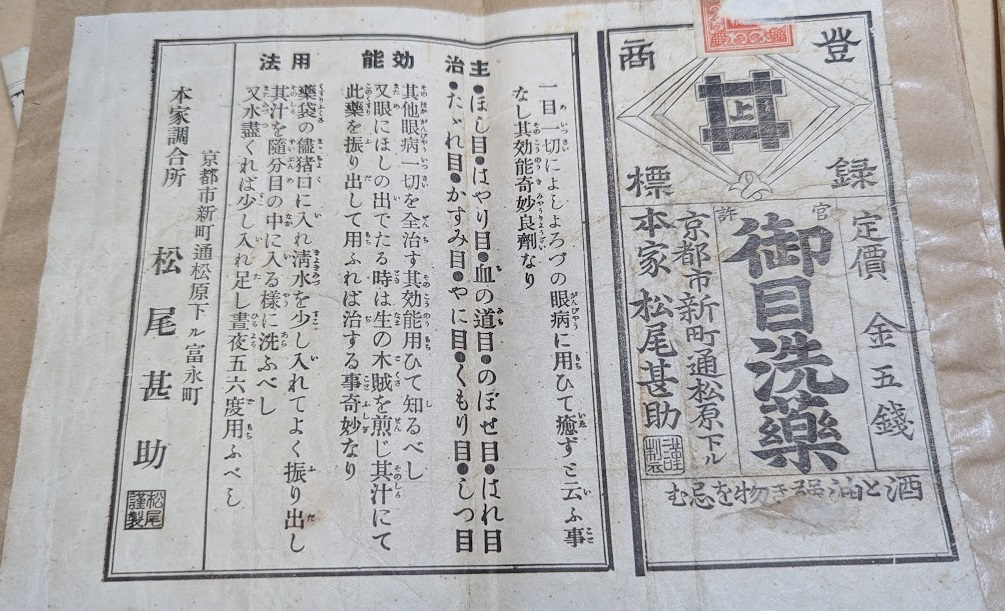 登録
商標
上
定價 金五錢
官許
御目洗藥
京都市新町通松原下ル
本家 松尾甚助
酒と油强き物を忌む
一目一切によしよろづの眼病に用ひて癒ずと云ふ事
なし其効能奇妙良劑なり
主治
●ほし目●はやり目●血の道目●のぼせ目●はれ目
●たゞれ目●かすみ目●やに目●くもり目●しつ目
効能
其他眼病一切を全治す其効能用ひて知るべし
又眼にほしの出でたる時は生の木賊を煎じ其汁にて
此藥を振り出して用ふれば治する事奇妙なり
用法
藥袋の儘猪口に入れ淸水を少し入れてよく振り出し
其汁を隨分目の中に入る樣に洗ふべし
又水盡くれば少し入れ足し晝夜五六度用ふべし
京都市新町通松原下ル富永町
本家調合所 松尾甚助
松尾謹製